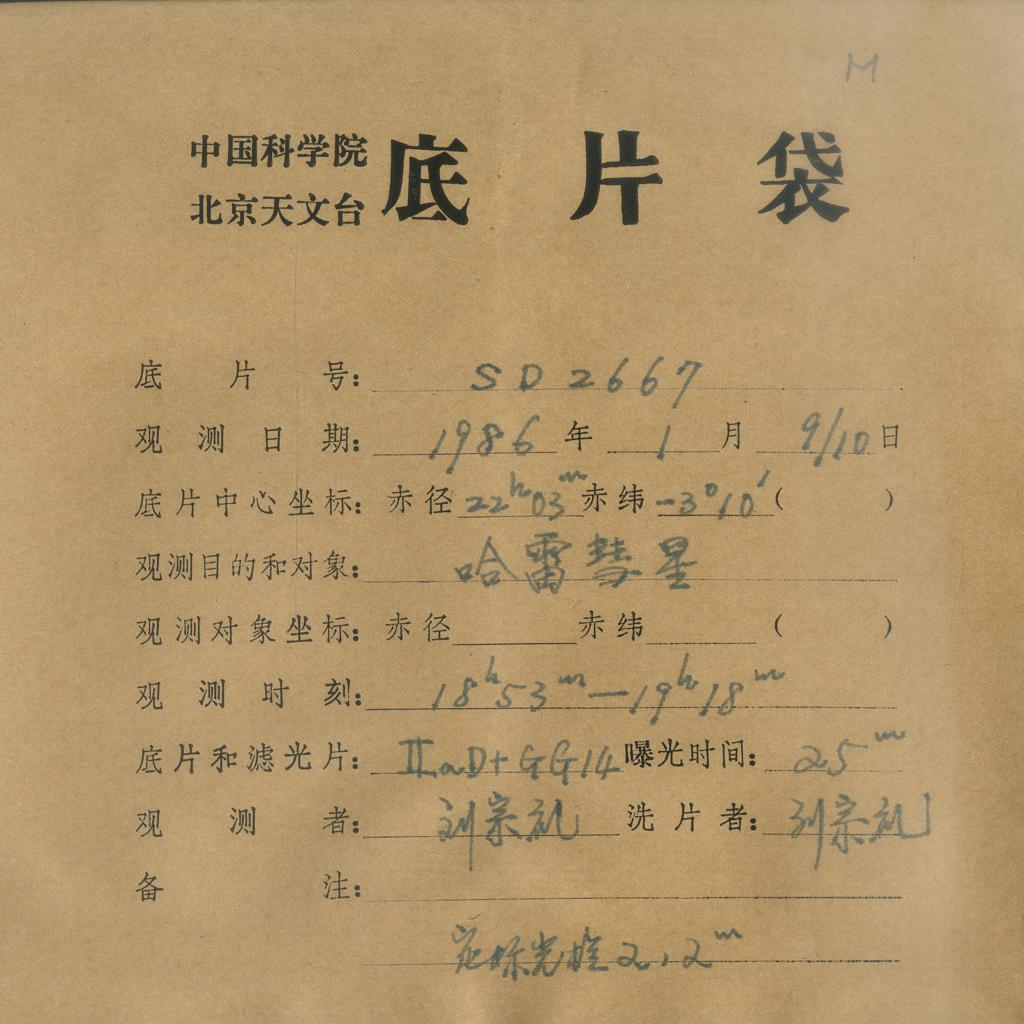 M
中国科学院
北京天文台
底片袋
底片号: SD2667
观测日期: 1986年1月9/10日
底片中心坐标: 赤径22ʰ03ᵐ赤纬-3°10′( )
观测目的和对象: 哈雷彗星
观测对象坐标: 赤径 赤纬 ( )
观测时刻: 18ʰ53ᵐ—19ʰ18ᵐ
底片和滤光片: ⅡaD+GG14 曝光时间: 25ᵐ
观测者: 刘宗礼 洗片者: 刘宗礼
备注:
定标光 2,2ᵐ